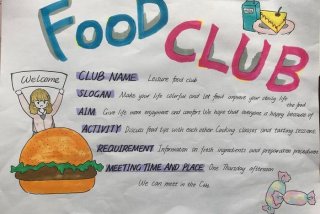 FOOD CLUB
Welcome
CLUB NAME Leisure food club
SLOGAN Make your life colorful and let food improve your daily life
the food
AIM Give life more enjoyment and comfort. We hope that everyone is happy because of
ACTIVITY Discuss food tips with each other. Cooking classes and tasting sessions.
REQUIREMENT Information on fresh ingredients and preparation procedures
MEETING TIME AND PLACE One Thursday afternoon
We can meet in the